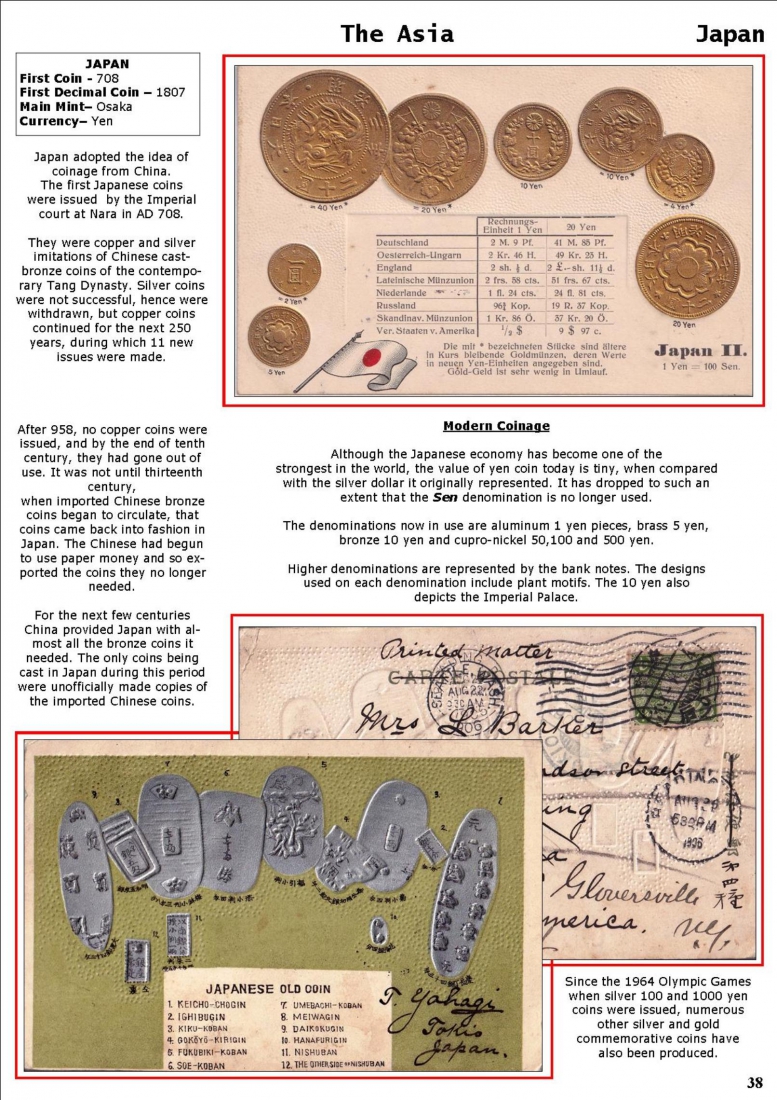 The Asia
Japan
JAPAN
First Coin - 708
First Decimal Coin – 1807
Main Mint– Osaka
Currency– Yen
Japan adopted the idea of
coinage from China.
The first Japanese coins
were issued by the Imperial
court at Nara in AD 708.
They were copper and silver
imitations of Chinese cast-
bronze coins of the contempo-
rary Tang Dynasty. Silver coins
were not successful, hence were
withdrawn, but copper coins
continued for the next 250
years, during which 11 new
issues were made.
After 958, no copper coins were
issued, and by the end of tenth
century, they had gone out of
use. It was not until thirteenth
century,
when imported Chinese bronze
coins began to circulate, that
coins came back into fashion in
Japan. The Chinese had begun
to use paper money and so ex-
ported the coins they no longer
needed.
For the next few centuries
China provided Japan with al-
most all the bronze coins it
needed. The only coins being
cast in Japan during this period
were unofficially made copies of
the imported Chinese coins.
= 40 Yen*
= 20 Yen*
10 Yen
= 10 Yen*
= 4 Yen*
= 2 Yen*
5 Yen
20 Yen
Rechnungs-Einheit 1 Yen | 20 Yen
Deutschland 2 M. 9 Pf. 41 M. 85 Pf.
Oesterreich-Ungarn 2 Kr. 46 H. 49 Kr. 23 H.
England 2 sh. ½ d. 2 £.-- sh. 11½ d.
Lateinische Münzunion 2 frs. 58 cts. 51 frs. 67 cts.
Niederlande 1 fl. 24 cts. 24 fl. 81 cts.
Russland 96¾ Kop. 19 R. 37 Kop.
Skandinav. Münzunion 1 Kr. 86 Ö. 37 Kr. 20 Ö.
Ver. Staaten v. Amerika ½ $ 9 $ 97 c.
Die mit * bezeichneten Stücke sind ältere
in Kurs bleibende Goldmünzen, deren Werte
in neuen Yen-Einheiten angegeben sind.
Gold-Geld ist sehr wenig in Umlauf.
Japan II.
1 Yen = 100 Sen.
Modern Coinage
Although the Japanese economy has become one of the
strongest in the world, the value of yen coin today is tiny, when compared
with the silver dollar it originally represented. It has dropped to such an
extent that the Sen denomination is no longer used.
The denominations now in use are aluminum 1 yen pieces, brass 5 yen,
bronze 10 yen and cupro-nickel 50,100 and 500 yen.
Higher denominations are represented by the bank notes. The designs
used on each denomination include plant motifs. The 10 yen also
depicts the Imperial Palace.
Printed matter
CARTE POSTALE
SEATTLE WASH.
AUG 22
930 AM
1906
Mrs L. Barker
dson street
AUG 28
530 PM
1906
Gloversville
merica. NY.
JAPANESE OLD COIN
1. KEICHO-CHOGIN
2. ICHIBUGIN
3. KIKU-KOBAN
4. GOKOYO-KIRIGIN
5. FUKUBIKI-KOBAN
6. SUE-KOBAN
7. UMEBACHI-KOBAN
8. MEIWAGIN
9. DAIKOKUGIN
10. HANAFURIGIN
11. NISHUBAN
12. THE OTHER SIDE OF NISHUBAN
T. Yahagi
Tokio
Japan.
Since the 1964 Olympic Games
when silver 100 and 1000 yen
coins were issued, numerous
other silver and gold
commemorative coins have
also been produced.
38